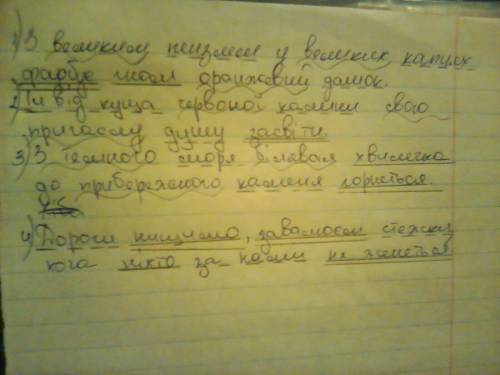 1) З великим пензлем у великих капцях
фарбує гном оранжевий домок.
2) Ти від куща червоної калини свою
пригаслу душу засвіти.
3) З темного моря білявая хвилечка
до прибережного каменя горнеться.
4) Дороги нищимо, завалюєм стежки,
хоча ніхто за нами не женеться.